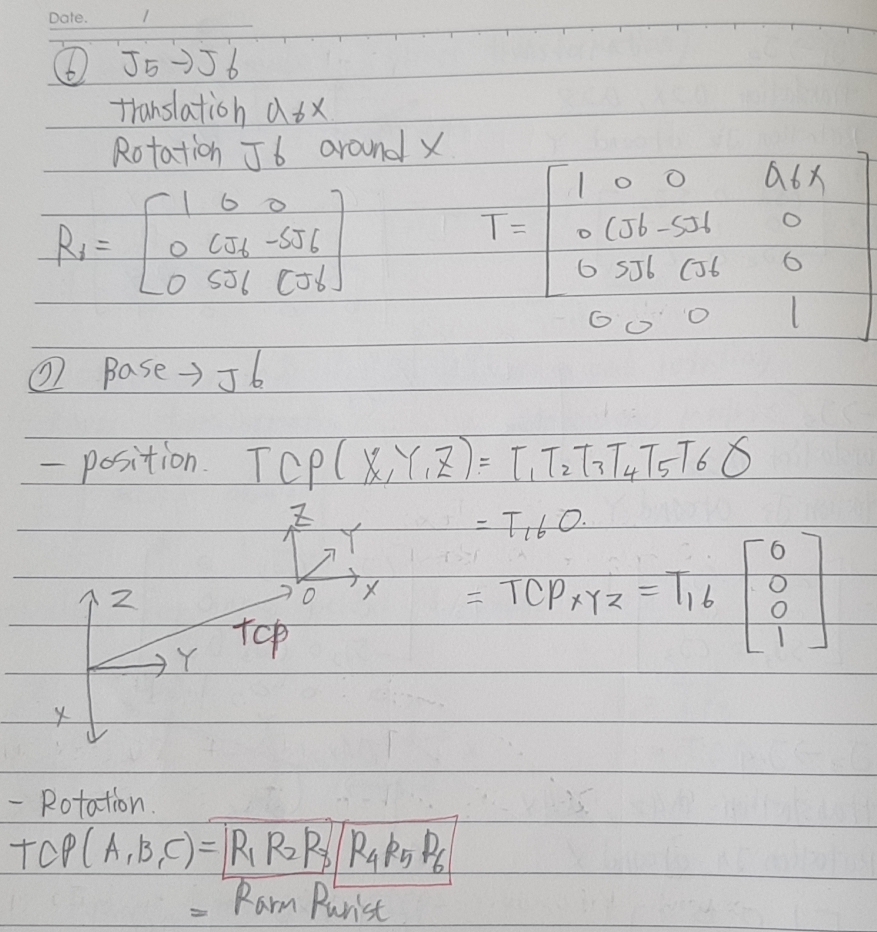 Date. /
⑥ J5 → J6
Translation a6x
Rotation J6 around X
R6 = [1 0 0
0 CJ6 -SJ6
0 SJ6 CJ6]
T = [1 0 0 a6x
0 CJ6 -SJ6 0
0 SJ6 CJ6 0
0 0 0 1]
⑦ Base → J6
- position. TCP(X,Y,Z) = T1T2T3T4T5T6 O
= T16 O.
= TCPXYZ = T16 [0
0
0
1]
Z Y X O
Z Y X
TCP
- Rotation.
TCP(A,B,C) = R1 R2 R3 R4 R5 R6
= Rarm Rwrist